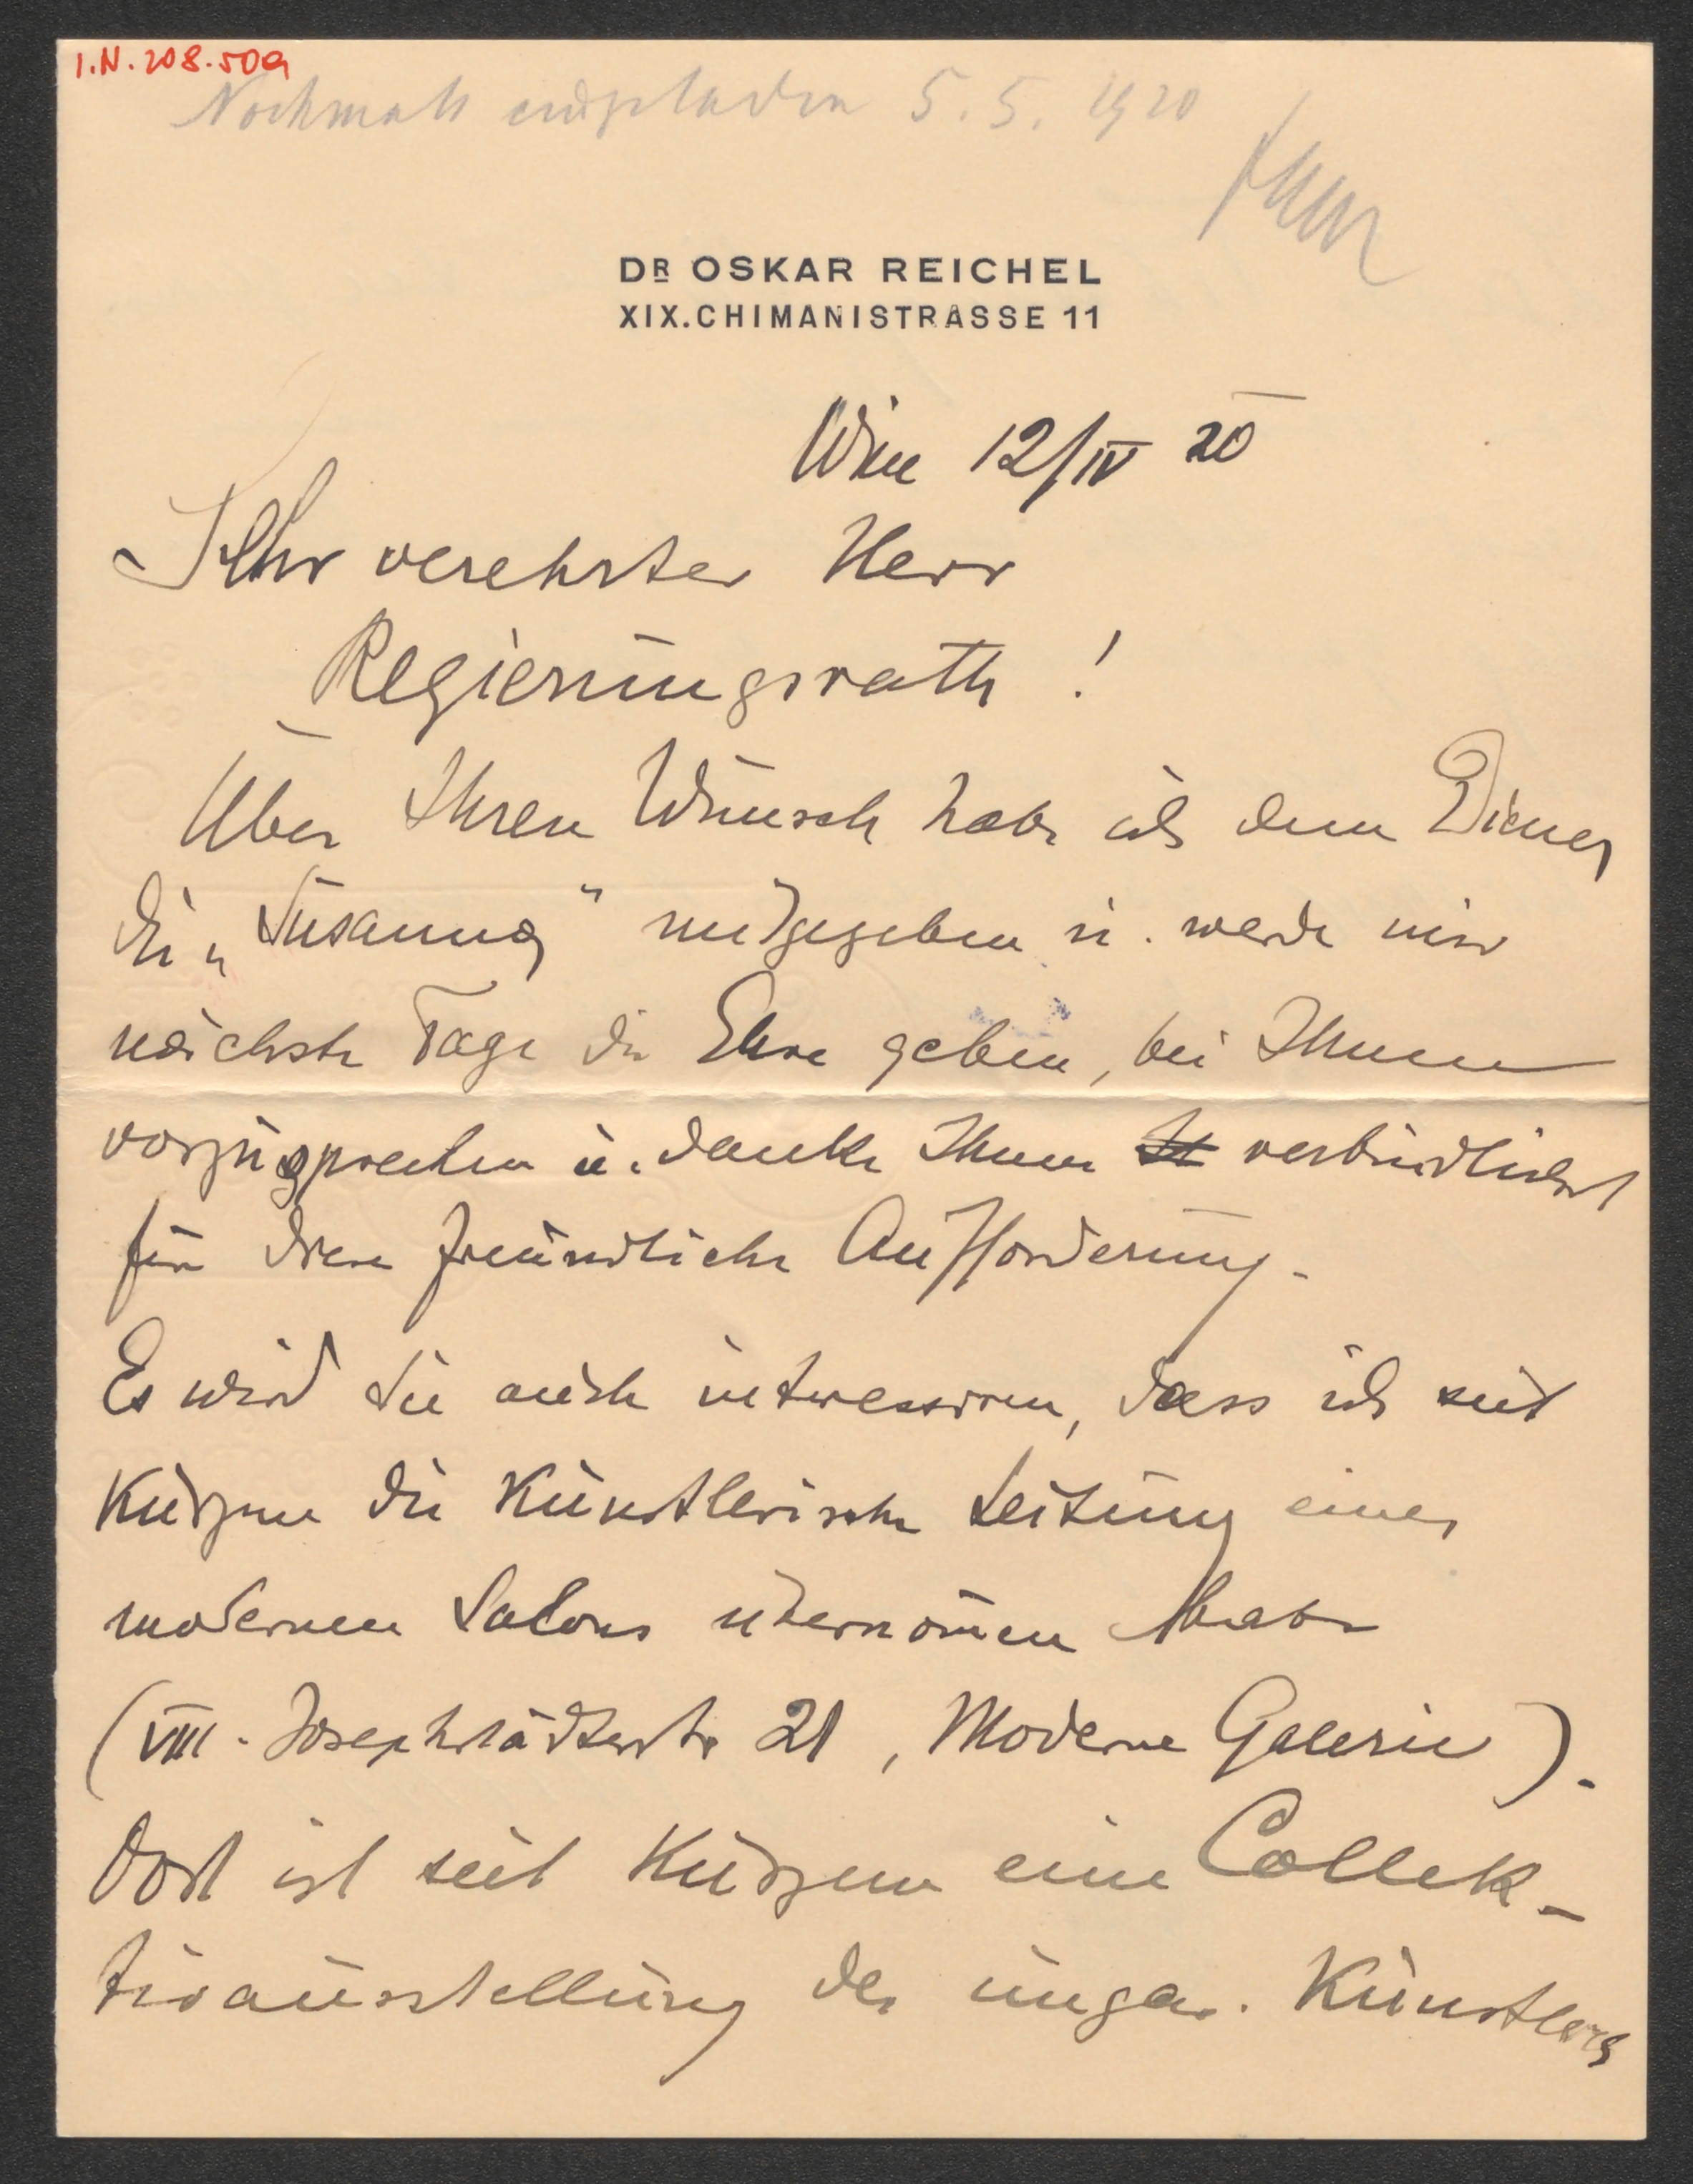 I.N. 208.509
Nochmals eingeladen 5.5.1920
DR OSKAR REICHEL
XIX. CHIMANISTRASSE 11
Wien 12/IV 20
Sehr verehrter Herr
Regierungsrath!
Über Ihren Wunsch habe ich dem Diener
die „Susanna" mitgegeben u. werde mir
nächste Tage die Ehre geben, bei Ihnen
vorzusprechen u. danke Ihnen verbindlichst
für Ihre freundliche Aufforderung.
Es wird Sie auch interessiren, dass ich seit
Kurzem die Künstlerische Leitung eines
modernen Salons übernom̄en habe
(VIII. Josephstädterstr 21, Moderne Galerie).
Dort ist seit Kurzem eine Collek-
tivausstellung des ungar. Künstlers